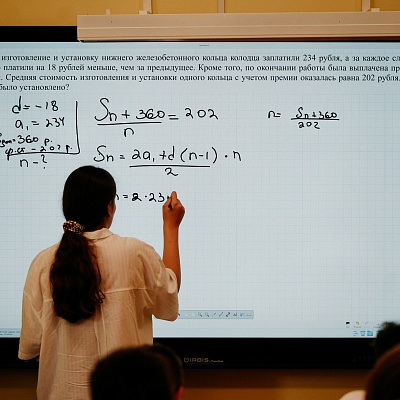 изготовление и установку нижнего железобетонного кольца колодца заплатили 234 рубля, а за каждое сл
платили на 18 рублей меньше, чем за предыдущее. Кроме того, по окончании работы была выплачена пр
Средняя стоимость изготовления и установки одного кольца с учетом премии оказалась равна 202 рубля.
было установлено?
d = -18
a₁ = 234
360 р.
202 р.
n - ?
Sn + 360 / n = 202
Sn = 2a₁ + d(n-1) / 2 · n
n = 2 · 23
n = Sn + 360 / 202